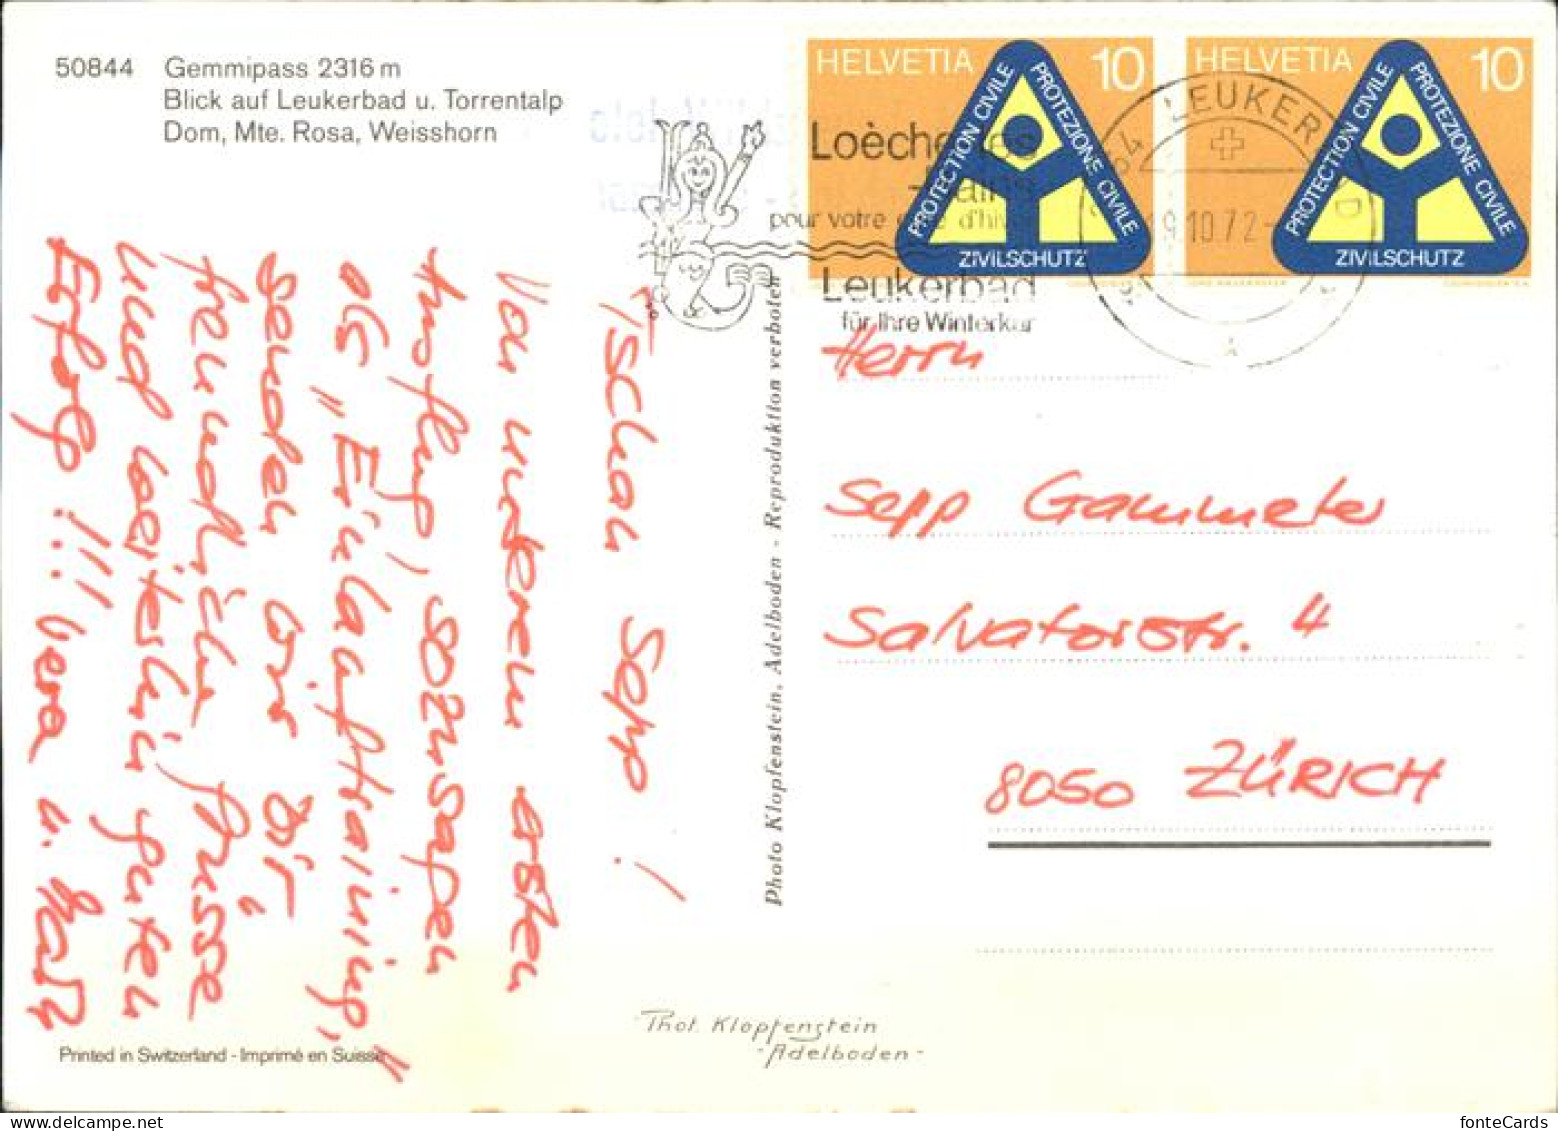 50844 Gemmipass 2316 m
Blick auf Leukerbad u. Torrentalp
Dom, Mte. Rosa, Weisshorn
HELVETIA 10
PROTECTION CIVILE
PROTEZIONE CIVILE
ZIVILSCHUTZ
HELVETIA 10
PROTECTION CIVILE
PROTEZIONE CIVILE
ZIVILSCHUTZ
Loèche-les
-Bains
pour votre cure d'hiver
Leukerbad
für Ihre Winterkur
LEUKERBAD
19.10.72-
Tschau Sepp!
Von unserem ersten
Ausflug, sozusagen
als "Einlauftraining,"
senden wir dir
freundliche Grüsse
und weiterhin guten
Erfolg!!! Vera u.
Photo Klopfenstein, Adelboden - Reproduktion verboten
Herrn
Sepp Gammeter
Salvatorstr. 4
8050 ZÜRICH
Phot. Klopfenstein
- Adelboden -
Printed in Switzerland - Imprimé en Suisse
fonteCards